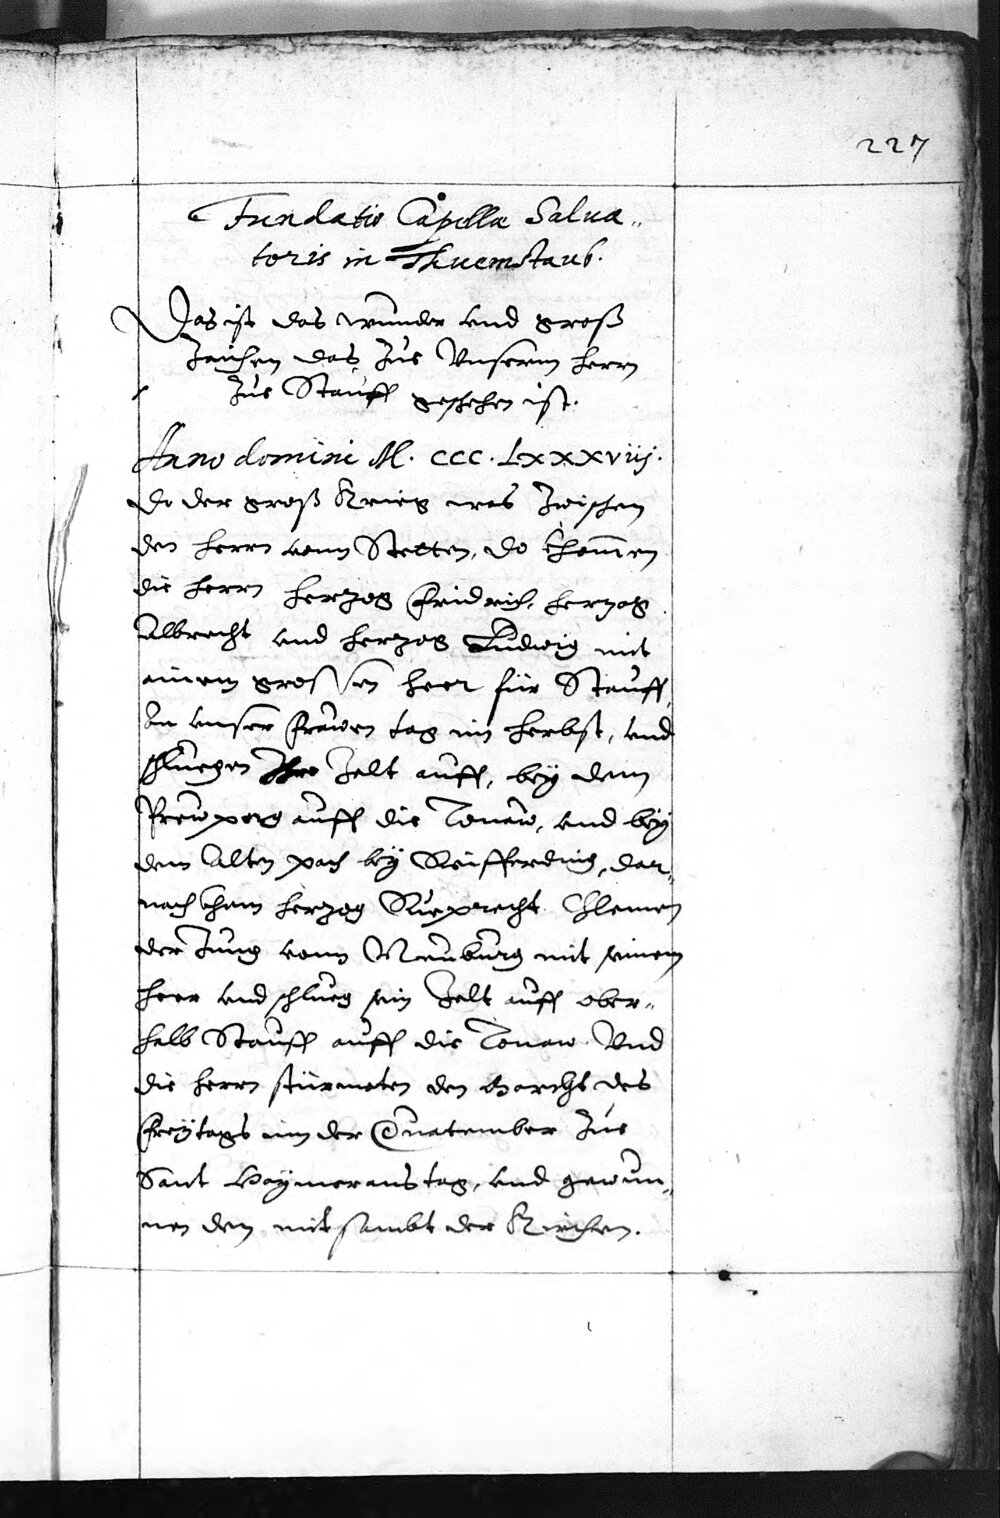 227
Fundatio Capellæ Salua„
toris in Thuemstaub.
Das ist das wunder vnd groß
Zaichen das Zue Vnserm herrn
Zue Stauff geschehen ist.
Anno domini M. CCC. LXXXVIIJ.
Do der groß Krieg was Zwischen
den herrn vnnd Stetten, do khommen
die herrn herzog Fridrich, herzog
Albrecht vnd herzog Ludwig mit
ainem grossen heer für Stauff,
An vnser frawen tag im herbst, vnd
schluegen Ihre Zelt auff, bey dem
auff die Tonaw, vnd bey
dem Alten pach bey Reifferding, dar„
nach kham herzog Rueprecht Chlemen
der Jung vonn Neuburg mit seinem
heer vnd schlueg sein Zelt auff ober„
halb Stauff auff die Tonaw. Vnd
die herrn stürmeten den Marckht des
Freytags inn der Quatember Zue
Sant Haymerans tag, vnd gewun„
nen den mitsambt der Kirchen.